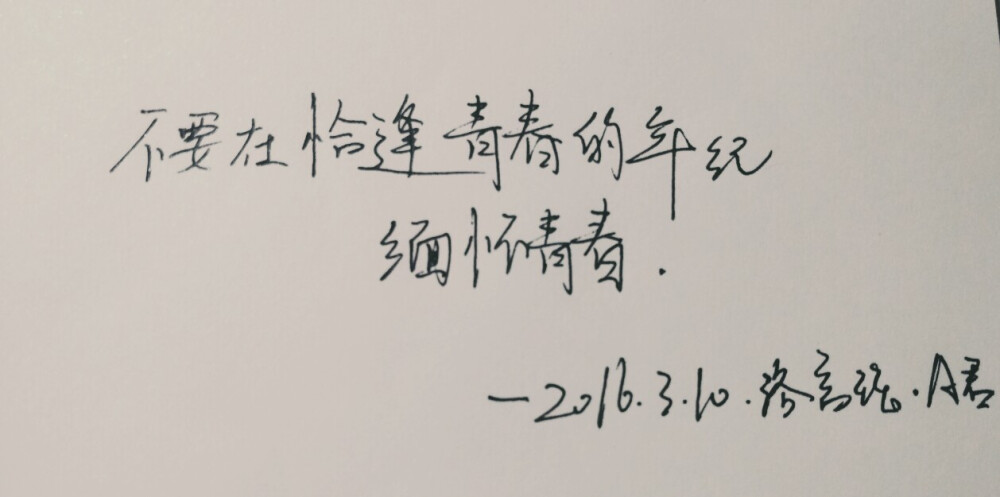 不要在恰逢青春的年纪
缅怀青春.
—2016.3.10.洛言说.A君